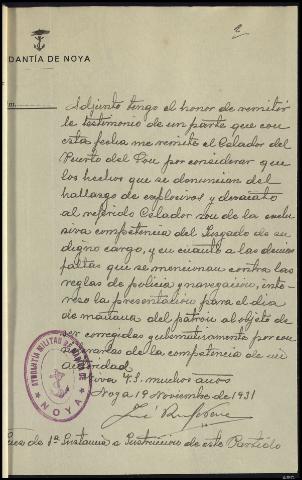 2
DANTÍA DE NOYA
m.
Adjunto tengo el honor de remitir
le testimonio de un parte que con
esta fecha me remite el Celador del
Puerto del Son por considerar que
los hechos que se denuncian del
hallazgo de explosivos y desacato
al referido Celador son de la exclu
siva competencia del Juzgado de su
digno cargo, y en cuanto a las demas
faltas que se mencionan contra las
reglas de policia y navegación, inte-
reso la presentación para el dia
de mañana del patrón al objeto de
ser corregidas gubernativamente por con
siderarlas de la competencia de mi
autoridad.
Viva V.S. muchos años
Noya 19 Noviembre de 1931
AYUDANTIA MILITAR DE MARINA DE
NOYA
Juez de 1ª Instancia e Instrucción de este Partido